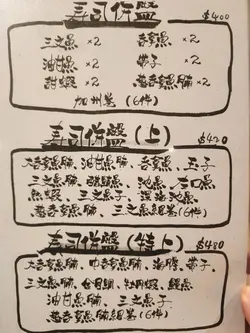 寿司併盤 $400
三文魚 ×2 吞拿魚 ×2
油甘魚 ×2 帶子 ×2
甜蝦 ×2 葱吞拿魚腩 ×2
加州卷 (6件)
寿司併盤 (上) $420
大吞拿魚腩、油甘魚腩、吞拿魚、玉子
三文魚、醋鯖魚、池魚、左口魚
魚蝦、三文魚子、深海池魚
葱吞拿魚腩、三文魚細卷 (6件)
寿司併盤 (特上) $480
大吞拿魚腩、中吞拿魚腩、海膽、帶子、
三文魚腩、金目鯛、牡丹蝦、鰻魚
油甘魚腩、三文魚子
葱吞拿魚腩細卷 (6件)